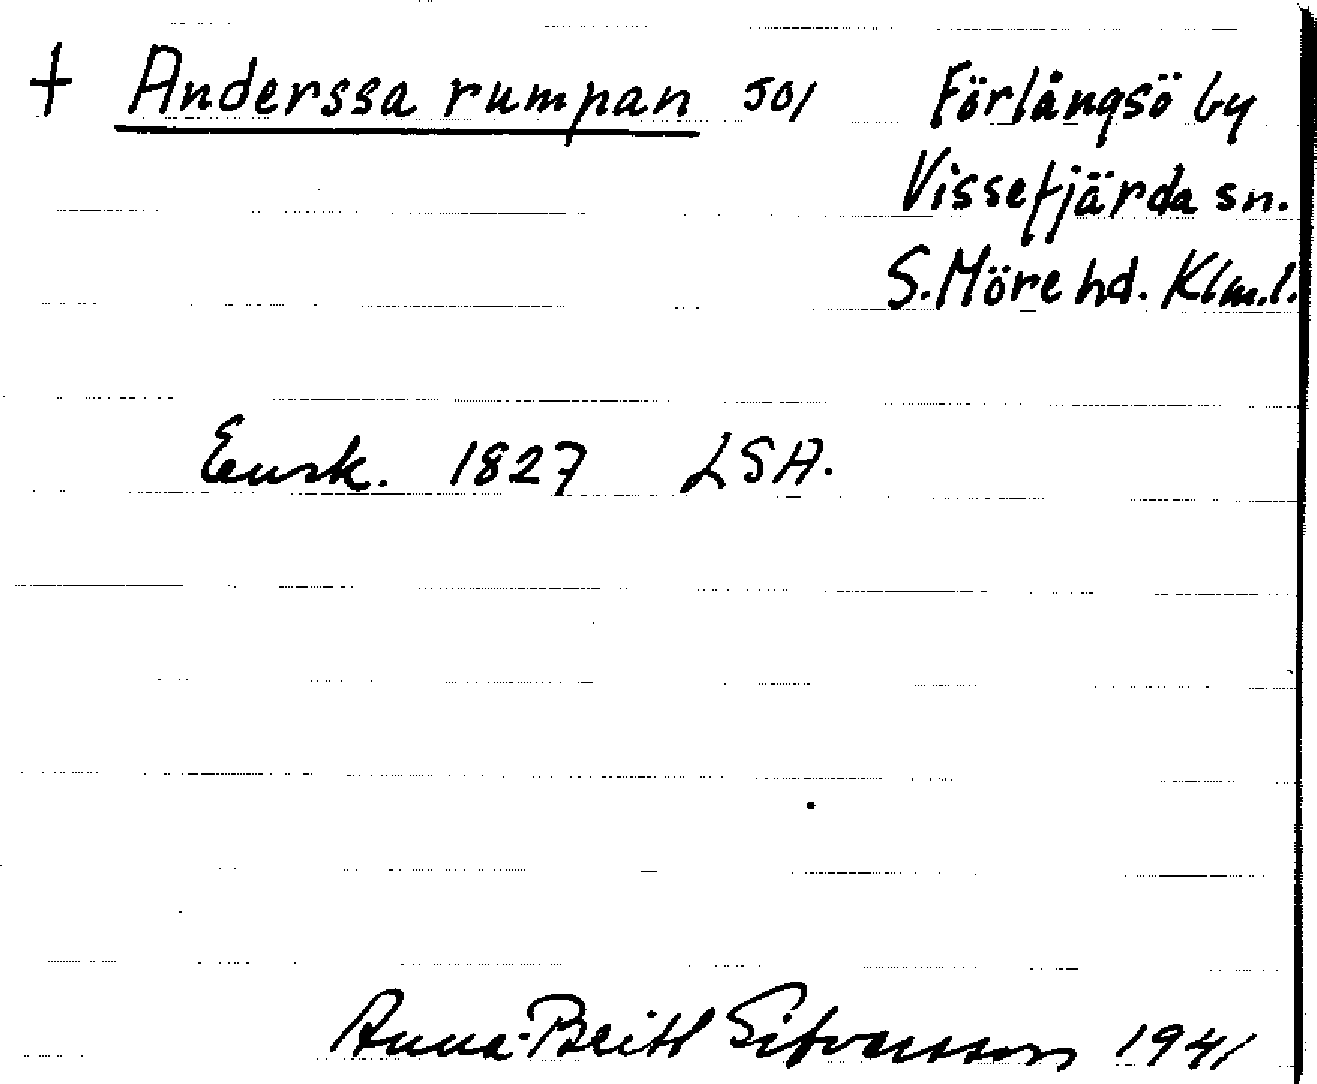 + Anderssa rumpan 501 Förlångsö by
Vissefjärda sn.
S. Möre hd. Klm.l.
Ensk. 1827 LSA.
Anna-Britt Sifversson 1941